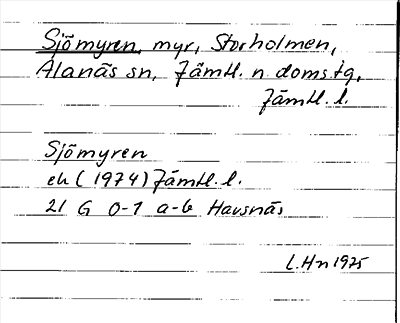 Sjömyren, myr, Storholmen,
Alanäs sn, Jämtl. n. doms.tg,
Jämtl. l.
Sjömyren
ek (1974) Jämtl. l.
21 G 0-1 a-b Havsnäs
L.Hn 1975